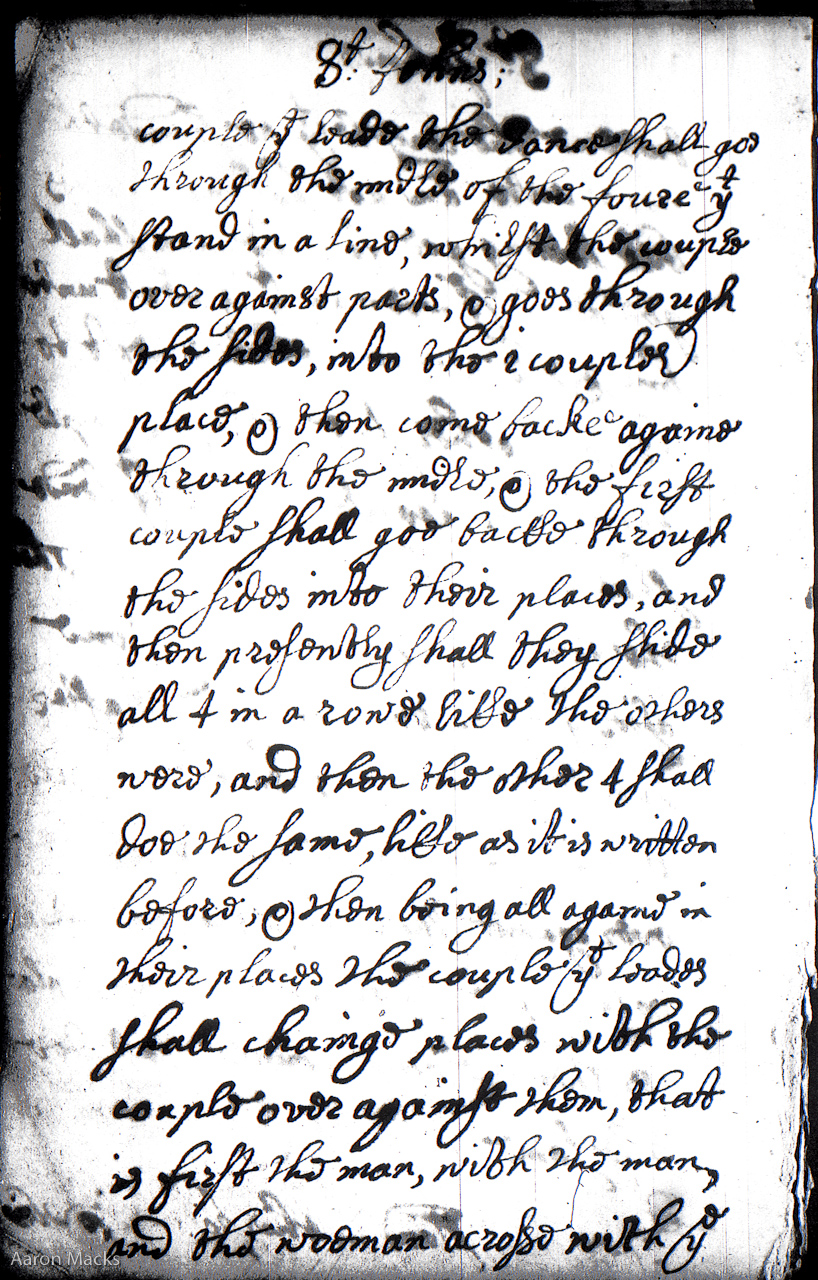 St. Johns;
couple yt leade the dance shall goe
through the midle of the foure yt
stand in a line, whilst the couple
over against parts, & goes through
the sides, into the i couples
place, & then come backe againe
through the midle, & the first
couple shall goe backe through
the sides into their places, and
then presently shall they slide
all 4 in a rowe like the others
were, and then the other 4 shall
doe the same, like as it is written
before, & then being all againe in
their places the couple yt leades
shall chainge places with the
couple over against them, that
is first the man, with the man,
and the woeman acrosse with ye
Aaron Macks